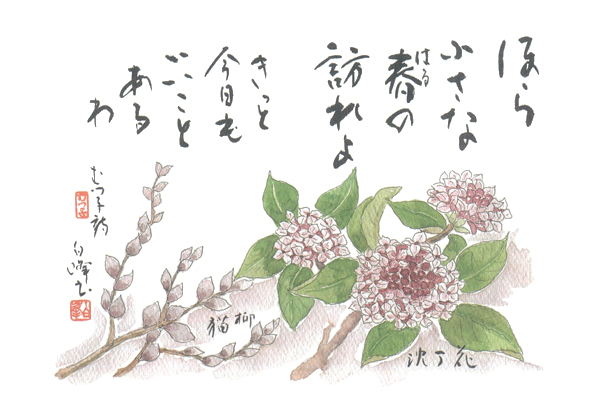 ほら
小さな
春の
はる
訪れよ
きっと
今日も
いいこと
ある
わ
むつ子 詩
猫柳
沈丁花